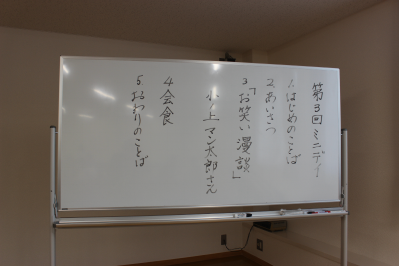 第3回ミニデイ
1.はじめのことば
2.あいさつ
3「お笑い漫談」
小ノ上マン太郎さん
4会食
5おわりのことば